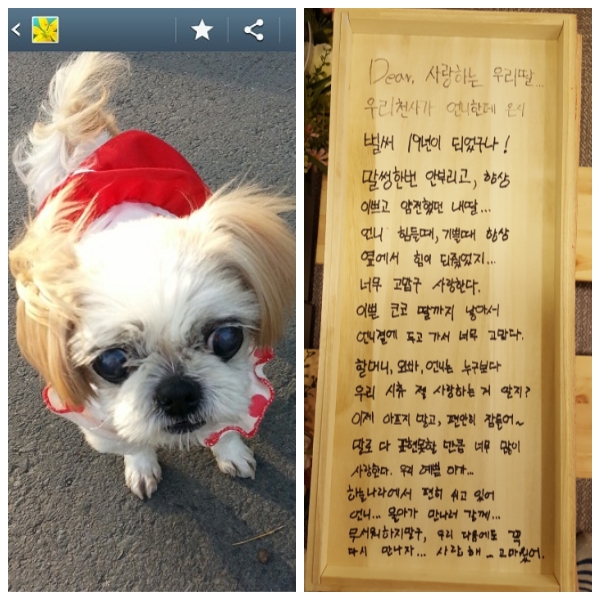 Dear. 사랑하는 우리딸...
우리천사가 언니한테 온지
벌써 19년이 되었구나!
말썽한번 안부리고, 항상
이쁘고 얌전했던 내딸...
언니 힘들때, 기쁠때 항상
옆에서 힘이 되줬었지...
너무 고맙구 사랑한다.
이쁜 코코 딸까지 낳아서
언니곁에 두고 가서 너무 고맙다.
할머니, 오빠, 언니는 누구보다
우리 시츄 젤 사랑하는 거 알지?
이제 아프지 말고, 편안히 잠들어~
말로 다 표현못할 만큼 너무 많이
사랑한다. 우리 예쁜
하늘나라에서 편히 쉬고 있어
언니... 만나러 갈께...
무서워하지말구, 우리 다음에도 꼭
다시 만나자... 사랑해... 고마웠어.